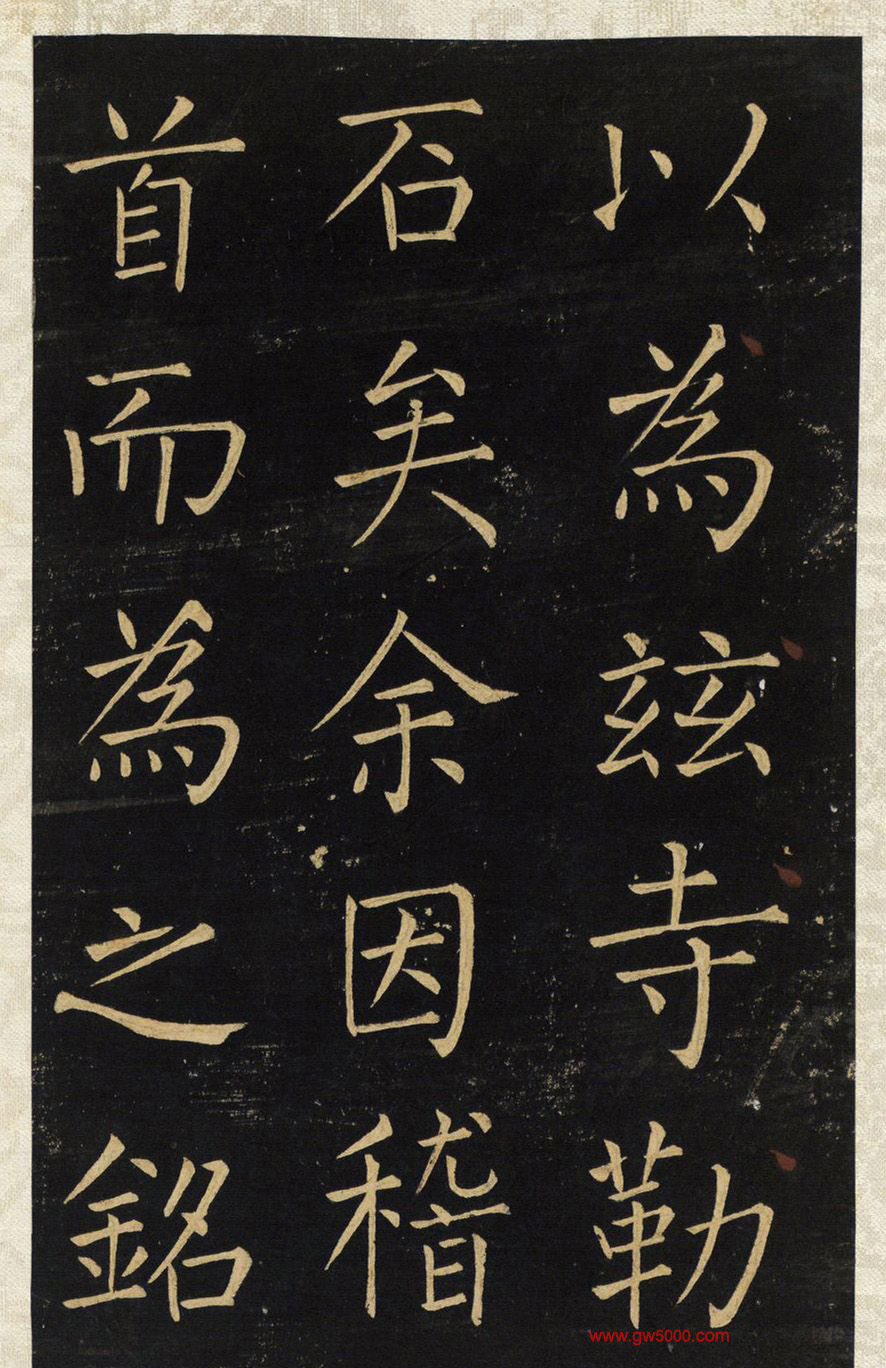 以為茲寺勒
石矣余因稽
首而為之銘
www.gw5000.com